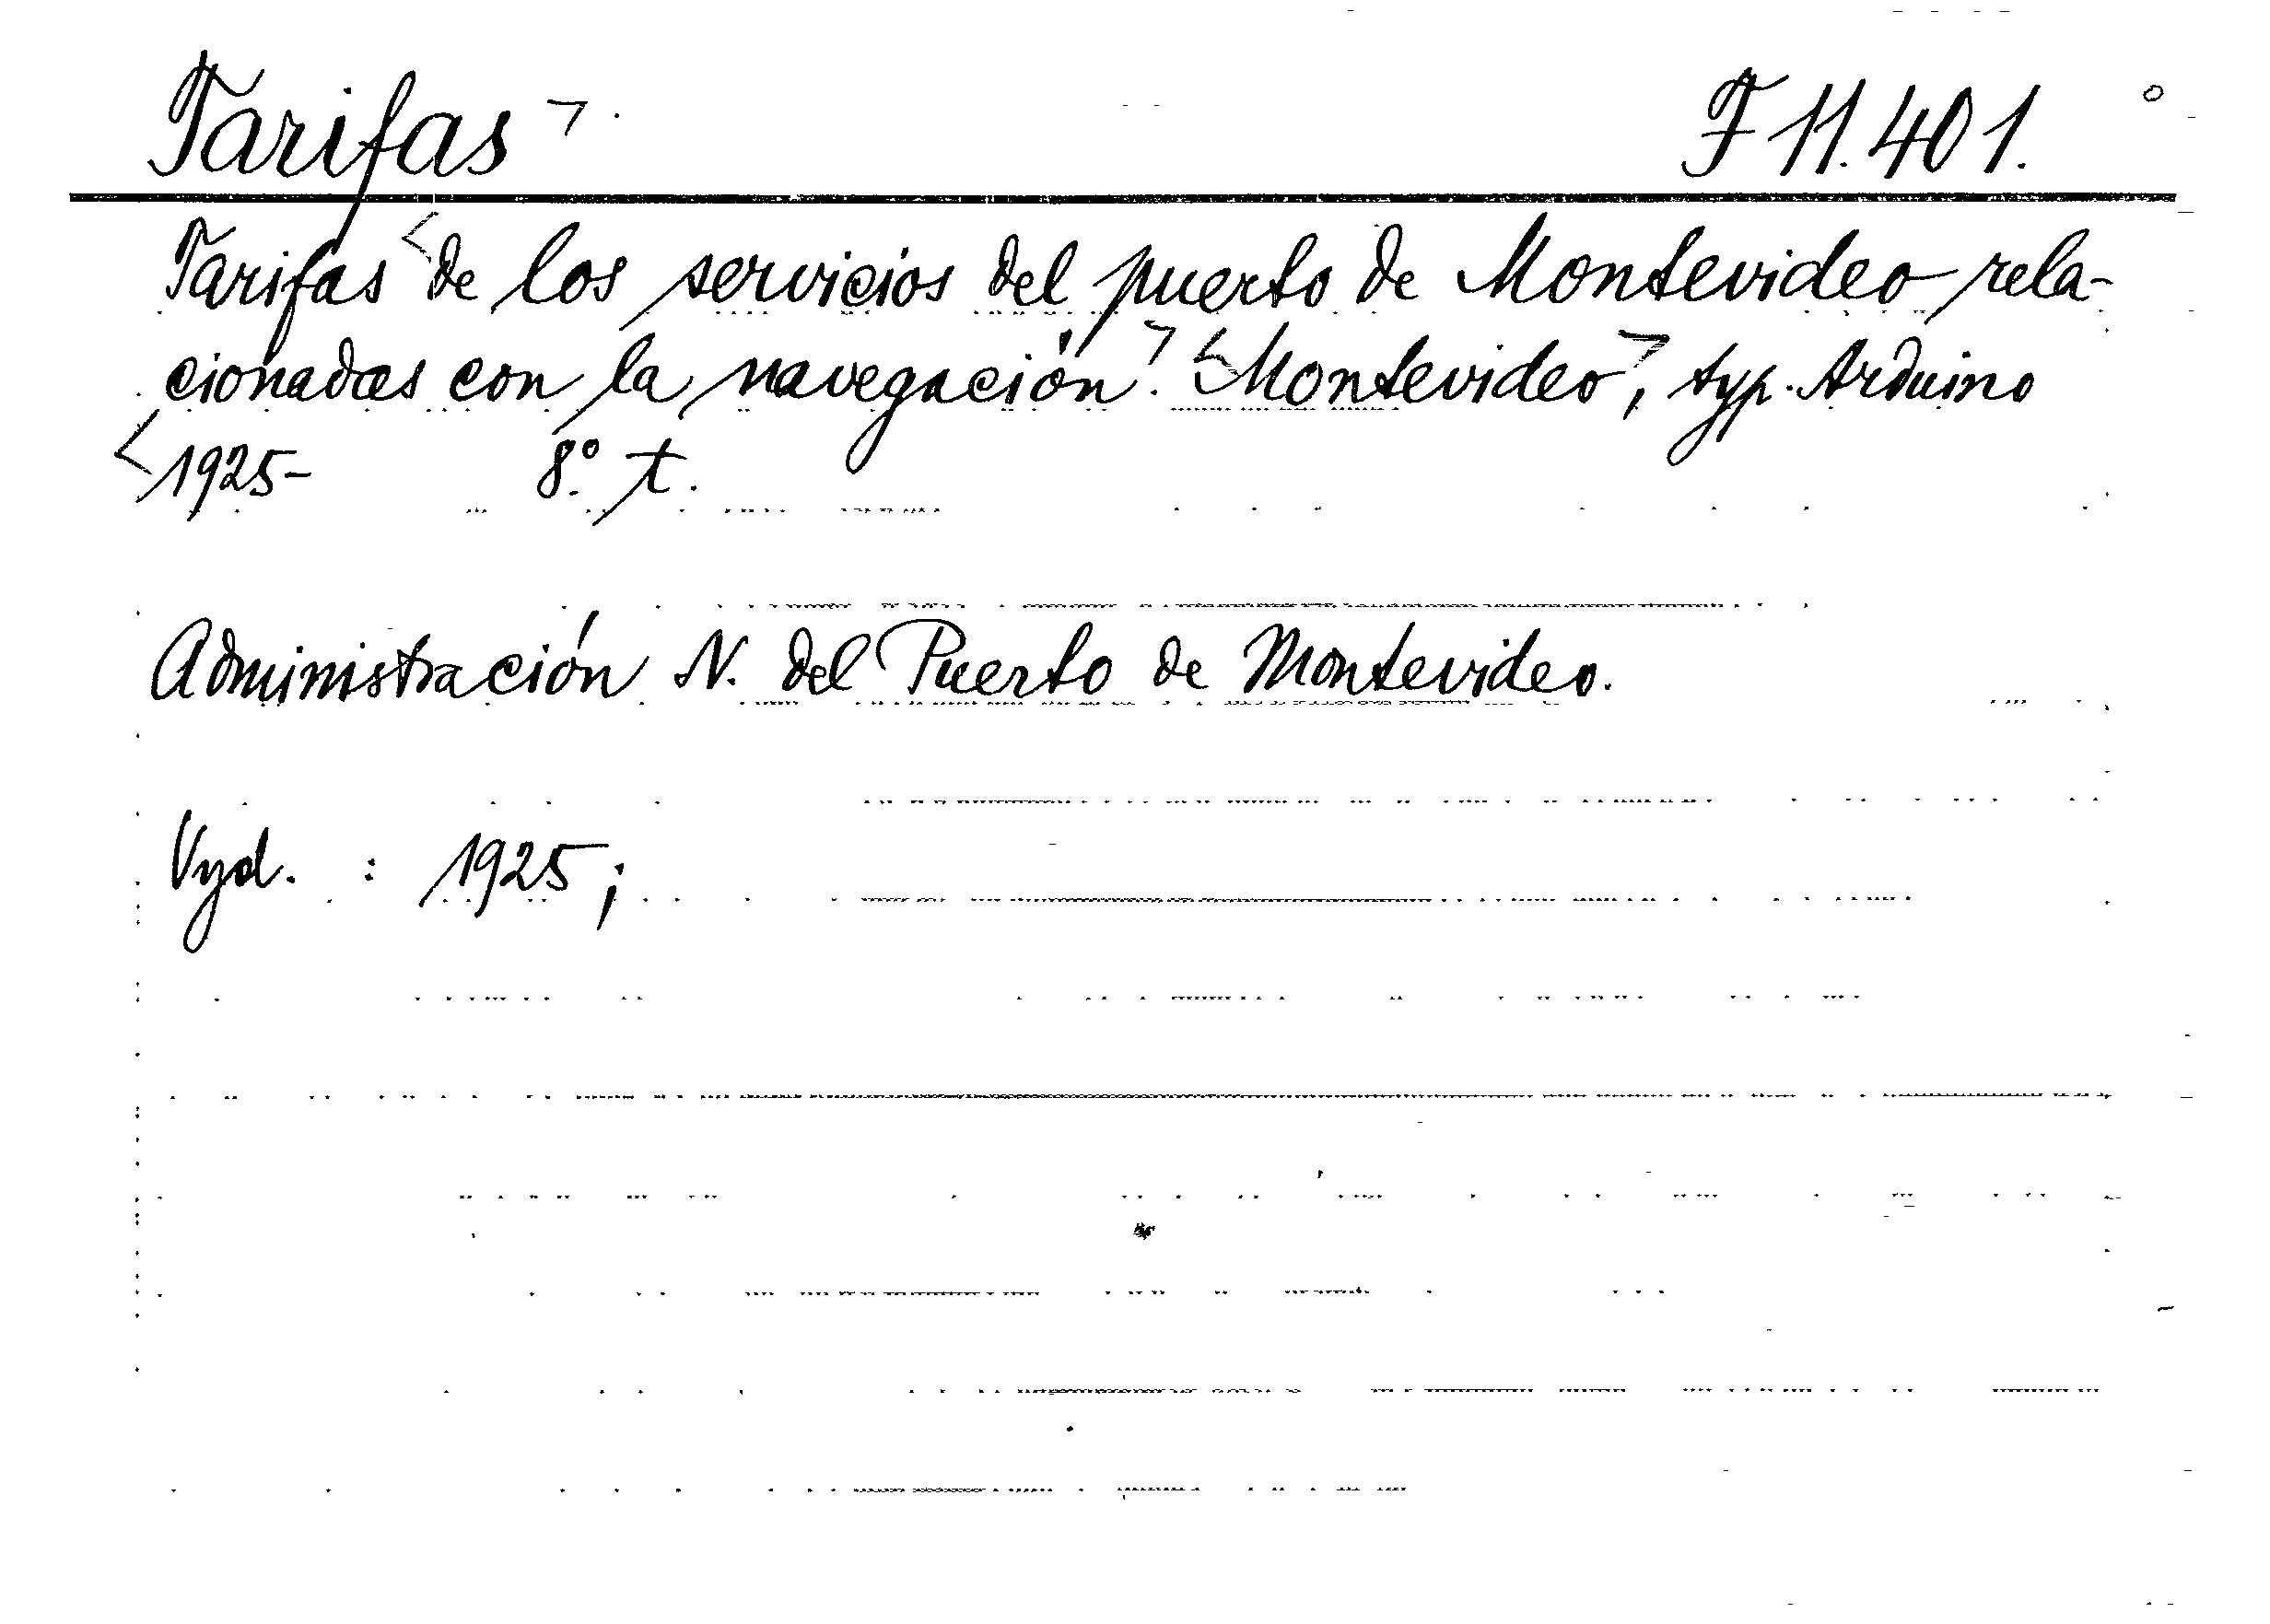 Tarifas F 11.401.
Tarifas de los servicios del puerto de Montevideo rela-
cionadas con la navegación. Montevideo, typ. Arduino
1925- 8.° t.
Administración N. del Puerto de Montevideo.
Vyd. : 1925;